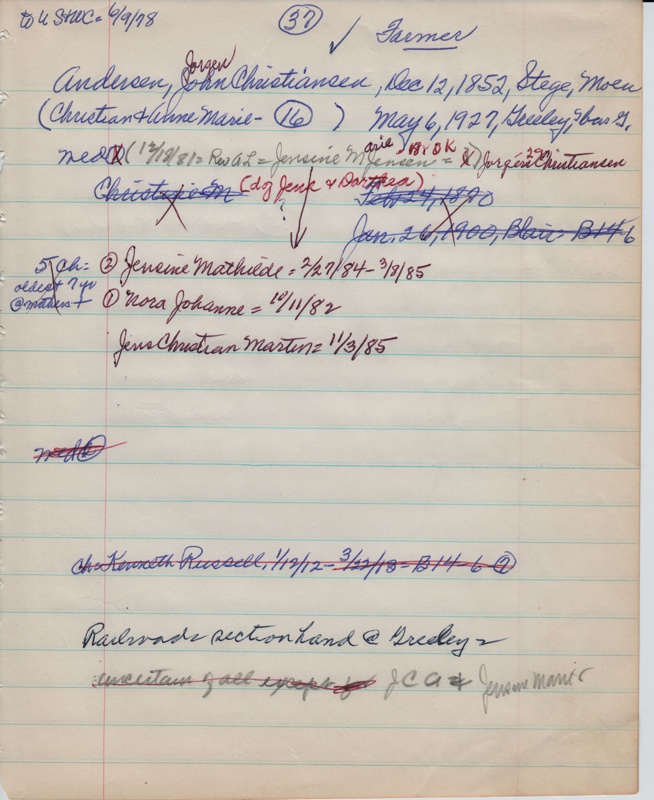 to U S+WC = 6/9/78
37
Farmer
Jorgen
Andersen, John Christiansen, Dec 12, 1852, Stege, Moen
(Christian & Anne Marie - 16) May 6, 1927, Greeley,
med (12/18/81 = Rev A L = Jensine M Jensen = Jorgen Christiansen
arie 18 & OK 29
Christ M (dg Jens & Dorthea) Feb 24, 1890
?
Jan. 26, 1900, Blair B14 6
5 ch = 2 Jensine Mathilde = 2/27/84 - 3/8/85
oldest 7 yr
@ mothers + 1 Nora Johanne = 10/11/82
Jens Christian Martin = 11/3/85
med
ch = Kenneth Russell, 1/12/12 - 3/22/18 = B14 - 6 2
Railroad section hand @ Greeley =
uncertain of all except J C A & Jensine Marie